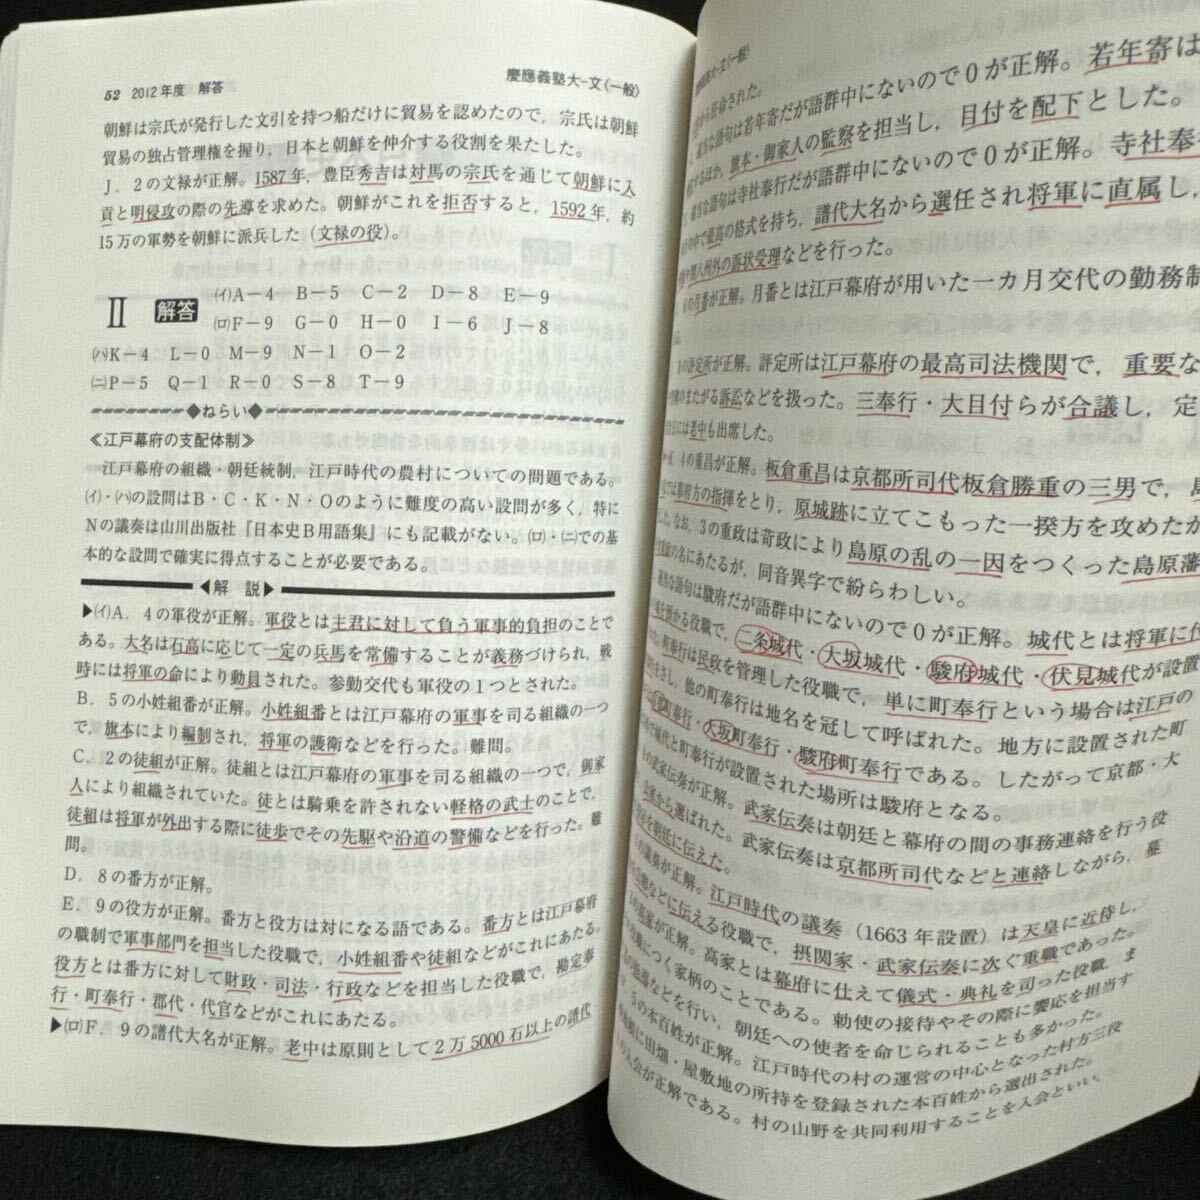 52 2012年度 解答
慶應義塾大-文(一般)
朝鮮は宗氏が発行した文引を持つ船だけに貿易を認めたので，宗氏は朝鮮
貿易の独占管理権を握り，日本と朝鮮を仲介する役割を果たした。
J．2の文禄が正解。1587年，豊臣秀吉は対馬の宗氏を通じて朝鮮に入
貢と明侵攻の際の先導を求めた。朝鮮がこれを拒否すると，1592年，約
15万の軍勢を朝鮮に派兵した（文禄の役）。
Ⅱ 解答 (イ)A－4 B－5 C－2 D－8 E－9
(ロ)F－9 G－0 H－0 I－6 J－8
(ハ)K－4 L－0 M－9 N－1 O－2
(ニ)P－5 Q－1 R－0 S－8 T－9
◆ねらい◆
≪江戸幕府の支配体制≫
江戸幕府の組織・朝廷統制，江戸時代の農村についての問題である。
(イ)・(ハ)の設問はB・C・K・N・Oのように難度の高い設問が多く，特に
Nの議奏は山川出版社『日本史B用語集』にも記載がない。(ロ)・(ニ)での基
本的な設問で確実に得点することが必要である。
◀解 説▶
▶(イ)A．4の軍役が正解。軍役とは主君に対して負う軍事的負担のことで
ある。大名は石高に応じて一定の兵馬を常備することが義務づけられ，戦
時には将軍の命により動員された。参勤交代も軍役の1つとされた。
B．5の小姓組番が正解。小姓組番とは江戸幕府の軍事を司る組織の一つ
で，旗本により編制され，将軍の護衛などを行った。難問。
C．2の徒組が正解。徒組とは江戸幕府の軍事を司る組織の一つで，御家
人により組織されていた。徒とは騎乗を許されない軽格の武士のことで，
徒組は将軍が外出する際に徒歩でその先駆や沿道の警備などを行った。難
問。
D．8の番方が正解。
E．9の役方が正解。番方と役方は対になる語である。番方とは江戸幕府
の職制で軍事部門を担当した役職で，小姓組番や徒組などがこれにあたる。
役方とは番方に対して財政・司法・行政などを担当した役職で，勘定奉
行・町奉行・郡代・代官などがこれにあたる。
▶(ロ)F．9の譜代大名が正解。老中は原則として2万5000石以上の譜代
から任命された。
適当な語句は若年寄だが語群中にないので0が正解。若年寄は
するほか，旗本・御家人の監察を担当し，目付を配下とした。
適当な語句は寺社奉行だが語群中にないので0が正解。寺社奉
の中で最高の格式を持ち，譜代大名から選任され将軍に直属し，
関八州外の訴状受理などを行った。
6の月番が正解。月番とは江戸幕府が用いた一カ月交代の勤務制
の評定所が正解。評定所は江戸幕府の最高司法機関で，重要な
のまたがる訴訟などを扱った。三奉行・大目付らが合議し，定
には老中も出席した。
4の重昌が正解。板倉重昌は京都所司代板倉勝重の三男で，島
では幕府方の指揮をとり，原城跡に立てこもった一揆方を攻めたが
なお，3の重政は苛政により島原の乱の一因をつくった島原藩
重政の名にあたるが，同音異字で紛らわしい。
適当な語句は駿府だが語群中にないので0が正解。城代とは将軍に代
を預かる役職で，二条城代・大坂城代・駿府城代・伏見城代が設置
町奉行は民政を管理した役職で，単に町奉行という場合は江戸の
をさし，他の町奉行は地名を冠して呼ばれた。地方に設置された町
町奉行・大坂町奉行・駿府町奉行である。したがって京都・大
で城代と町奉行が設置された場所は駿府となる。
の武家伝奏が正解。武家伝奏は朝廷と幕府の間の事務連絡を行う役
公家から選ばれた。武家伝奏は京都所司代などと連絡しながら，幕
を朝廷に伝えた。
の議奏が正解。江戸時代の議奏（1663年設置）は天皇に近侍し，
などに伝える役職で，摂関家・武家伝奏に次ぐ重職であった。
の高家が正解。高家とは幕府に仕えて儀式・典礼を司った役職，ま
役職につく家柄のことである。勅使の接待やその際に饗応を担当す
の指導などを行い，朝廷への使者を命じられることも多かった。
5の本百姓が正解。江戸時代の村の運営の中心となった村方三役
に田畑・屋敷地の所持を登録された本百姓から選出された。
の入会が正解である。村の山野を共同利用することを入会といい，